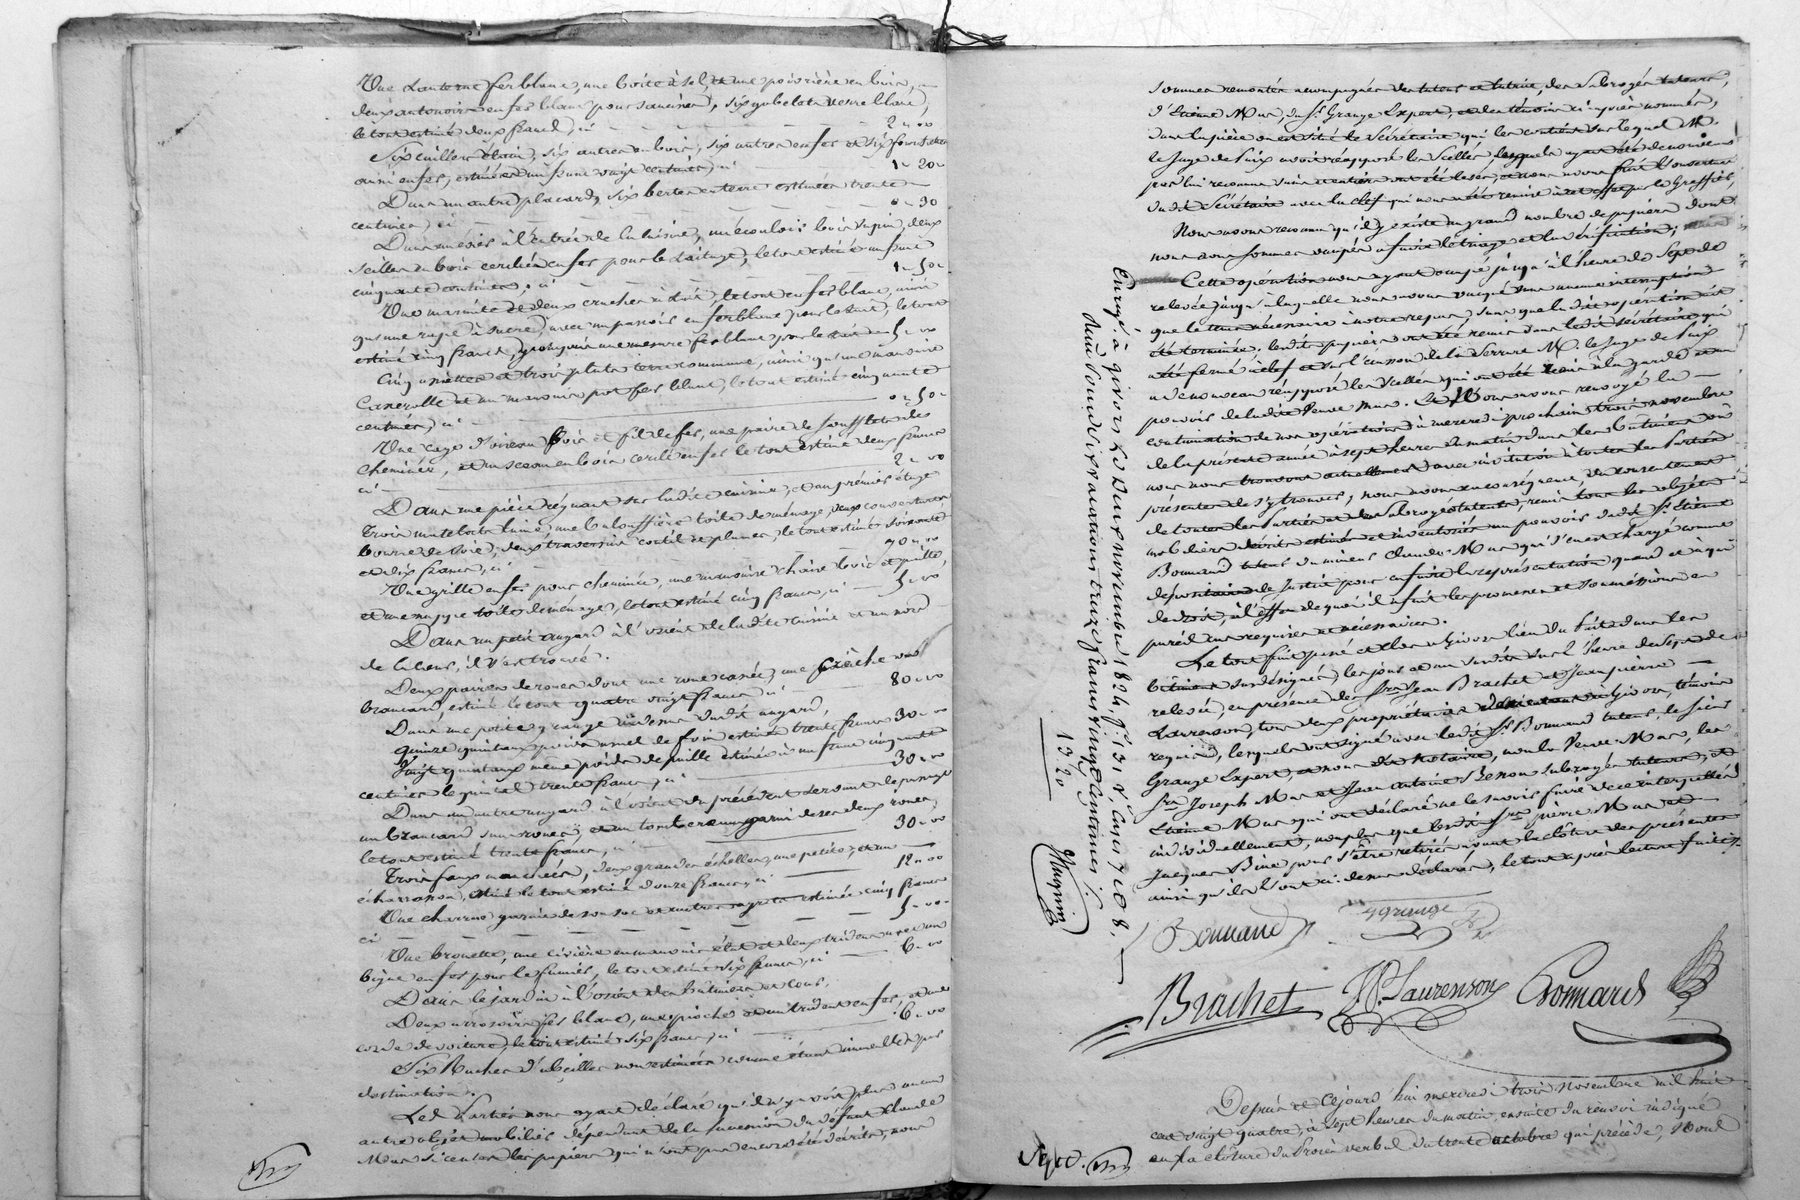 Une Lanterne ferblanc, une boite à sel, et une poivrière en bois,
deux antonoirs en fer blanc pour saucisses, six gobelets verre blanc,
le tout estimé deux francs, ci 2 " 00
Six cuillers étain, six autres en bois, six autres en fer et six fourchettes
aussi en fer, estimées un franc vingt centimes, ci 1 " 20
Dans un autre placard, six bertes en terre estimées trente
centimes, ci 0 " 30
Dans un évier à l'entrée de la cuisine, un écouloir bois sapin, deux
seilles en bois cerclées en fer pour le laitage, le tout estimé un franc
cinquante centimes, ci 1 " 50
Une marmite et deux cruches à lait, le tout en fer blanc, ainsi
qu'une rape à sucre, avec un passoir en ferblanc pour le lait, le tout
estimé cinq francs, y compris une mesure fer blanc pour le lait 5 " 00
Cinq assiettes et trois plats terre commune, ainsi qu'une mauvaise
Casserolle et un mauvais pot fer blanc, le tout estimé cinquante
centimes, ci 0 " 50
Une cage d'oiseau bois et fil de fer, une paire de soufflets de
cheminée, et un sceau en bois cerclé en fer le tout estimé deux francs
ci 2 " 00
Dans une pièce régnant sur ladite cuisine, et au premier étage
Trois matelats laine, une baloufière toile de ménage, deux couvertures
bourre de soie, deux traversins coutil et plumes, le tout estimé soixante
et dix francs, ci 70 " 00
Une grille en fer pour cheminée, une mauvaise chaise bois et paille,
et une nappe toile de ménage, le tout estimé cinq francs, ci 5 " 00
Dans un petit angard à l'orient de ladite cuisine et au nord
de la cour, il s'est trouvé.
Deux paires de roues dont une roue cassée, une crèche
brancard, estimé le tout quatre vingt francs, ci 80 " 00
Dans une petite grange au dessus dudit angard,
quinze quintaux poids usuel de foin estimés trente francs 30 " 00
Vingt quintaux même poids de paille estimée à un franc cinquante
centimes le quintal trente francs, ci 30 " 00
Dans un autre angard à l'orient du précédent servant de passage
un brancard sans roues, et un tombereau garni de ses deux roues,
le tout estimé trente francs, ci 30 " 00
Trois faux manchées, deux grandes échelles, une petite, et un
écharrasson, estimé le tout estimé douze francs, ci 12 " 00
Une charrue garnie de son soc et autres agrets estimée cinq francs
ci 5 " 00
Une brouette, une civière en mauvais état et deux tridents avec un
bigue en fer pour le fumier, le tout estimé six francs, ci 6 " 00
Dans le jardin à l'orient des bâtiments et cour,
Deux arrosoirs fer blanc, une pioche et un trident en fer, et une
corde de voiture, le tout estimé six francs, ci 6 " 00
Six Ruches d'abeilles non estimées comme étant immeubles par
destination.
Les Parties nous ayant déclaré qu'il n'y avoit plus aucun
autre objet mobilier dépendant de la succession du défunt Claude
Mus si ce n'est les papiers qui n'ont pas encore été décrits, nous
sommes remontés accompagnés des tuteur et tutrice, des subrogés tuteurs,
d'Etienne Mus, du Sr. Grange Expert, et des témoins ci-après nommés,
dans la pièce où est situé le secrétaire qui les contient sur lequel M.
le Juge de Paix avoit réapposé les scellés, lesquels ayant été de nouveau
par lui reconnus sains et entiers ont été levés, et nous avons fait l'ouverture
dudit secrétaire avec la clef qui nous a été remise à cet effet par le Greffier,
Nous avons reconnu qu'il y existe un grand nombre de papiers dont
nous nous sommes occupés à faire le triage et la vérification;
Cette opération nous ayant occupé jusqu'à l'heure de sept de
relevée jusqu'à laquelle nous avons vaqué sans aucune interruption
que le tems nécessaire à notre repas, sans que ladite opération ait
été terminée, lesdits papiers ont été remis dans ledit secrétaire qui
a été fermé à clef et sur l'ecusson de la serrure M. le Juge de Paix
a de nouveau réapposé les scellés qui ont été laissés à la garde et au
pouvoir de ladite Veuve Mus. Et Nous avons renvoyé la
continuation de nos opérations à mercredi prochain trois novembre
de la présente année à sept heures du matin dans les bâtimens où
nous nous trouvons actuellement avec invitation à toutes les Parties
présentes de s'y trouver, nous avons en conséquence, du consentement
de toutes les Parties et des subrogés tuteurs, remis tous les objets
mobiliers décrits estimés et inventoriés au pouvoir dudit Sr. Etienne
Bonnand tuteur du mineur Claude Mus qui s'en est chargé comme
dépositaire de Justice pour en faire la représentation quand et à qui
de droit, à l'effet de quoi il a fait les promesses et soumissions en
pareil cas requises et nécessaires.
Le tout fait passé et clos à Givors lieu du fait dans les
bâtimens susdésignés, les jours et an susdits sur l'heure de sept de
relevée, en présence des Srs. Jean Brachet et Jean pierre
Laurenson, tous deux propriétaires demeurant à Givors, témoins
requis, lesquels ont signé avec ledit Sr. Bonnand tuteur, le sieur
Grange Expert, et nous dit Notaire, non la Veuve Mus, les
Srs. Joseph Mus et Jean Antoine Benon subrogés tuteurs, et
Etienne Mus qui ont déclaré ne le savoir faire de ce interpellés
individuellement, non plus que lesdits Srs. pierre Mus et
Jacques Bine pour s'être retirés avant la clôture des présentes
ainsi qu'ils l'ont ci-dessus déclaré, le tout après lecture faite.
Bonnand
Grange
Brachet JP. Laurenson Bonnard
Enreg. à givors le deux novembre 1824, f. 131 v, cases 7 et 8.
reçu pour dix vacations treize francs vingt centimes.
13 20
Depuis et Cejourd'hui mercredi trois Novembre mil huit
cent vingt quatre, à sept heures du matin ensuite du renvoi indiqué
en la clôture du Procès verbal du trente octobre qui précède, Nous